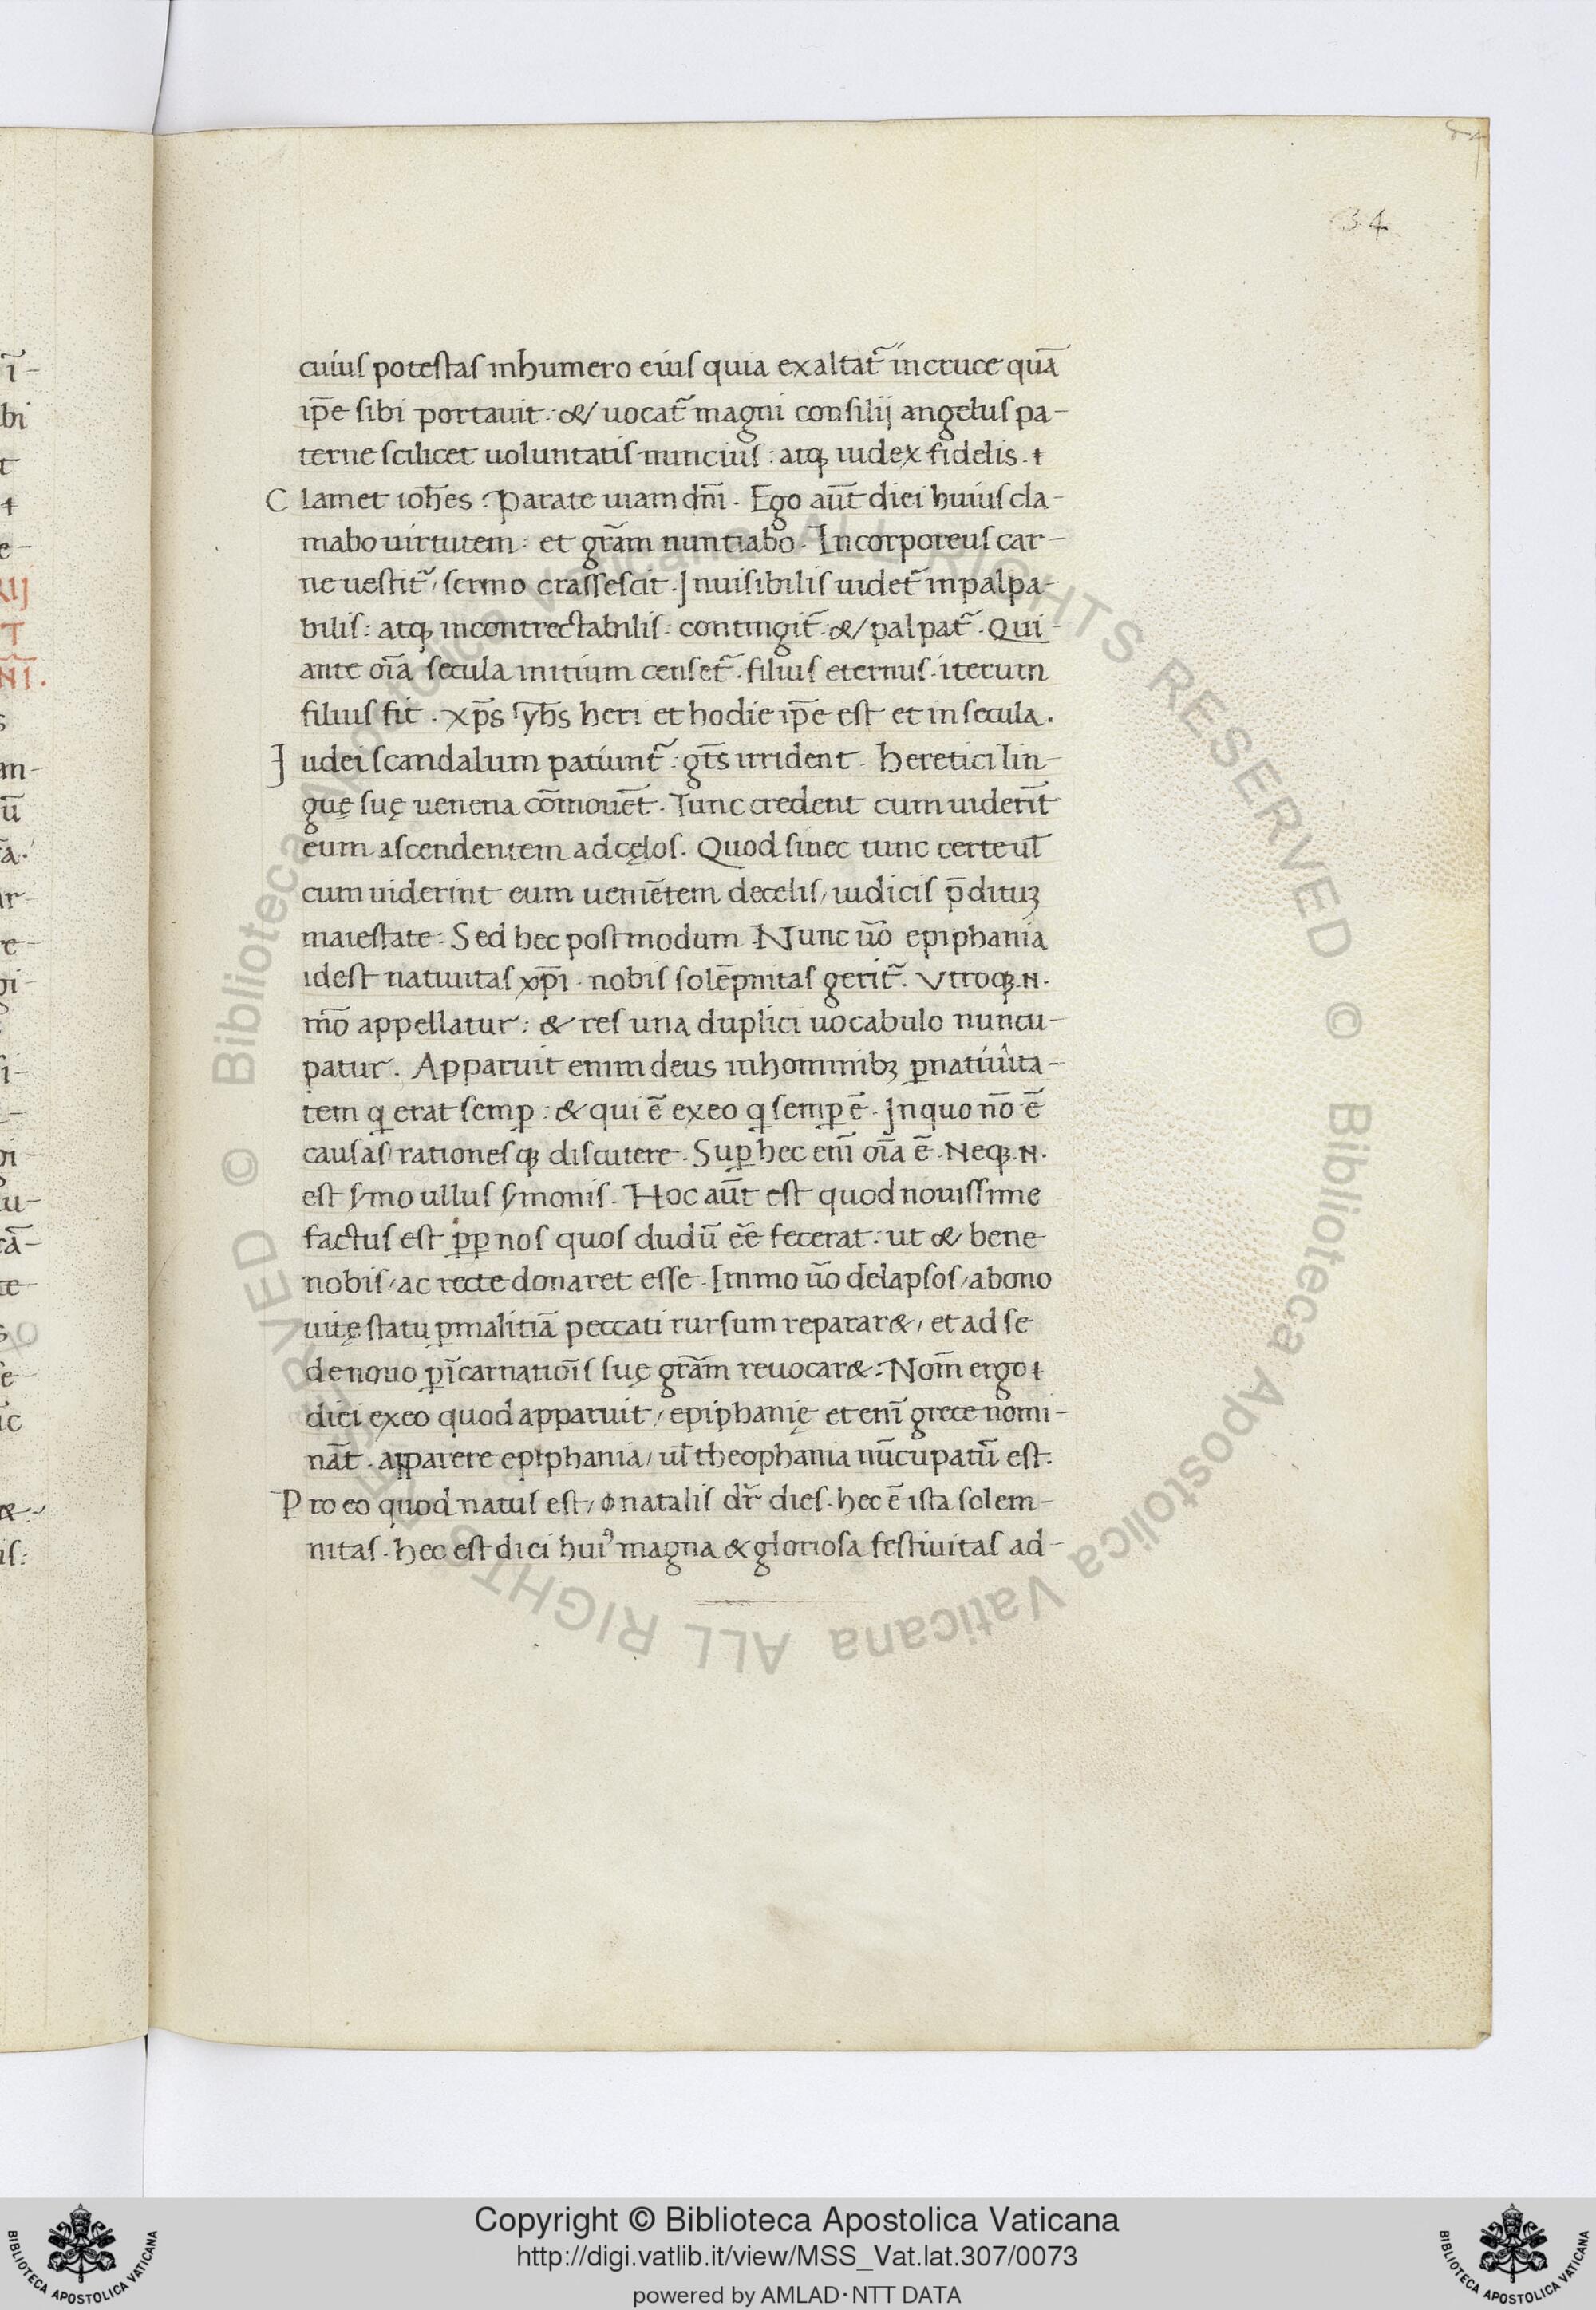 34
cuius potestas in humero eius quia exaltat᷑ in cruce quā
ip̄e sibi portauit: & uocat᷑ magni consilij angelus pa-
terne scilicet uoluntatis nuncius: atq; iudex fidelis.
Clamet ioh̄es: Parate uiam dn̄i. Ego aūt diei huius cla-
mabo uirtutem: et gr̄am nuntiabo. Incorporeus car-
ne uestit᷑, sermo crassescit. Inuisibilis uidet᷑ inpalpa-
bilis: atq; incontrectabilis: contingit᷑. & palpat᷑. Qui
ante oīa secula initium censet᷑. filius eternus. iterum
filius fit. xp̄s yh̄s heri et hodie ip̄e est et in secula.
Iudei scandalum patiunt᷑: gt̄s irrident. heretici lin-
guę suę uenena cōmouēt. Tunc credent cum uiderīt
eum ascendentem ad cęlos. Quod si nec tunc certe ul̄
cum uiderint eum ueniētem de celis, iudicis p̄dituꝫ
maiestate: Sed hec postmodum. Nunc ūo epiphania
idest natiuitas xp̄i. nobis solēpnitas gerit᷑. Vtroq; .N.
mō appellatur: & res una duplici uocabulo nuncu-
patur. Apparuit enim deus in hominibꝫ ꝑ natiuita-
tem q erat semꝑ: & qui ē ex eo q semꝑ ē. In quo nō ē
causas, rationesq; discutere. Suꝑ hec enī oīa ē. Neq; .N.
est s̸mo ullus s̸monis. Hoc aūt est quod nouissime
factus est ꝓp nos quos dudū eē fecerat: ut & bene
nobis, ac recte donaret esse. Immo ūo delapsos, a bono
uitę statu ꝑ malitiā peccati rursum reparar&, et ad se
de nouo ꝑ īcarnatioīs suę gr̄am reuocar&: Nom̄ ergo
diei ex eo quod apparuit, epiphanię et enī grece nomi-
nāt. apparere epiphania, ul̄ theophania nūcupatū est.
Pro eo quod natus est, natalis dr̄ dies. hec ē ista solem-
nitas. hec est diei huiꝰ magna & gloriosa festiuitas ad-
Copyright © Biblioteca Apostolica Vaticana
http://digi.vatlib.it/view/MSS_Vat.lat.307/0073
powered by AMLAD·NTT DATA